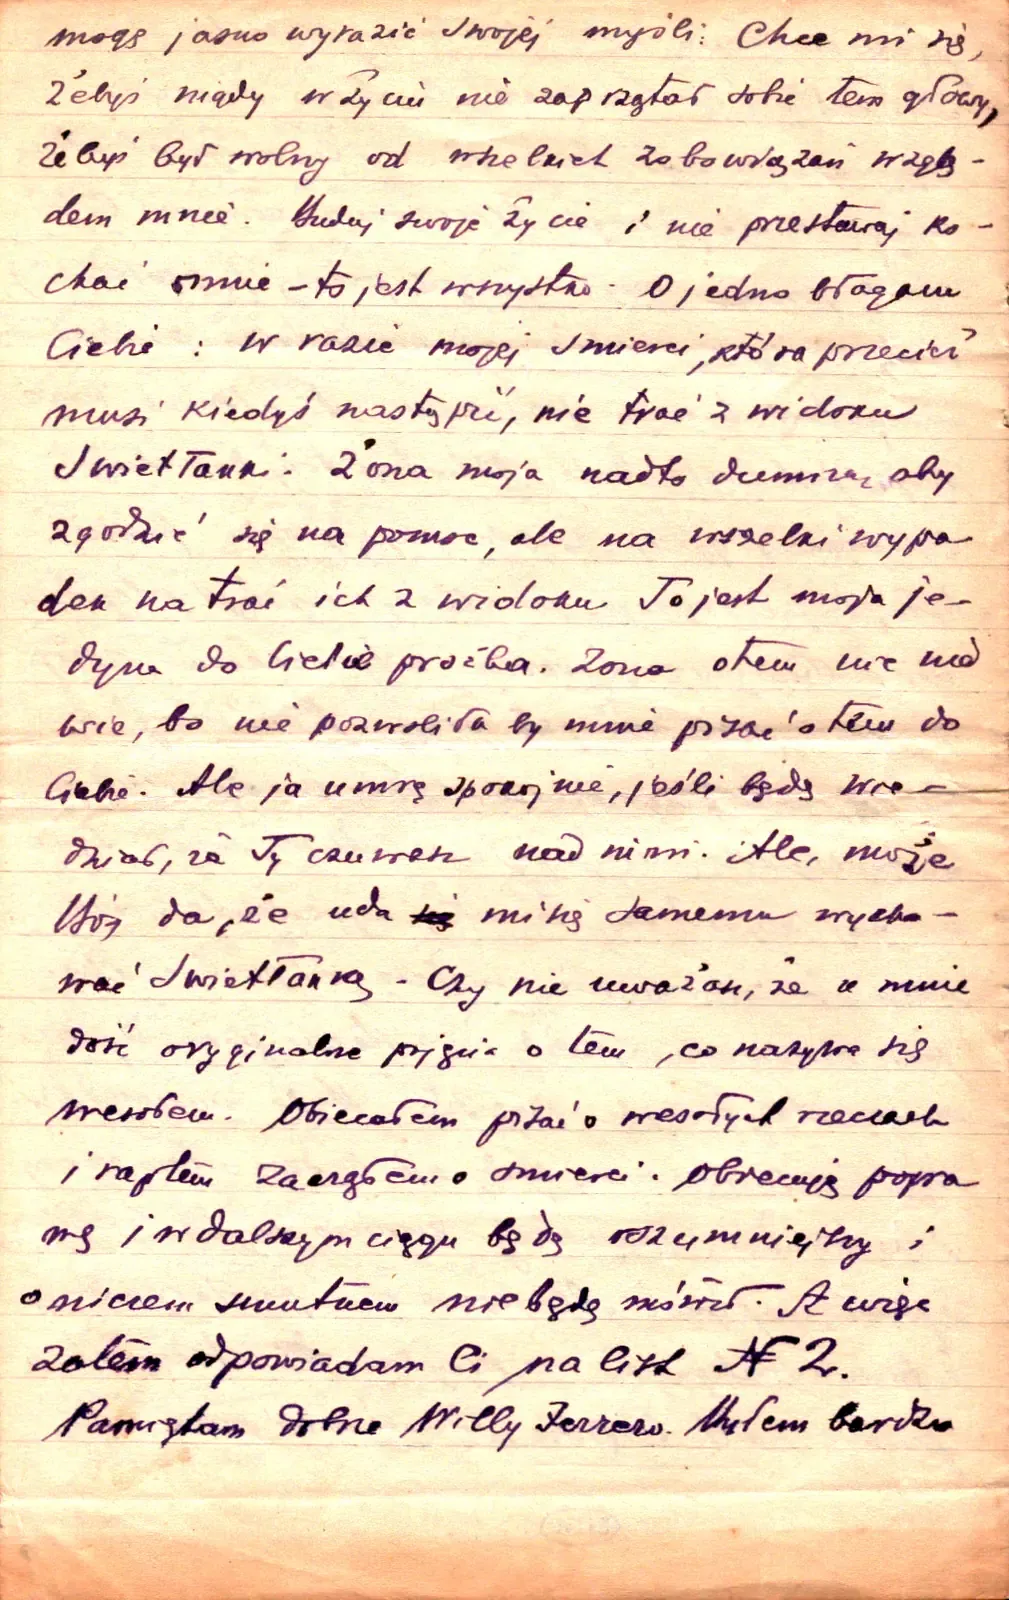 mogę jasno wyrazić swojej myśli: Chce mi się,
żebyś nigdy w życiu nie zaprzątał sobie tem głowy,
żebyś był wolny od wszelkich zobowiązań wzglę-
dem mnie. Buduj swoje życie i nie przestawaj ko-
chać mnie – to jest wszystko. O jedno błagam
Ciebie : w razie mojej śmierci, która przecież
musi kiedyś nastąpić, nie trać z widoku
Swietłanki. Żona moja nadto dumna, aby
zgodzić się na pomoc, ale na wszelki wypa
dek nie trać ich z widoku To jest moja je-
dyna do Ciebie prośba. Żona o tem nic nie
wie, bo nie pozwoliła by mnie pisać o tem do
Ciebie. Ale ja umrę spokojnie, jeśli będę wie-
dział, że Ty czuwasz nad nimi. Ale, może
Bóg da, że uda mi się samemu wycho-
wać Swietłankę - Czy nie uważasz, że u mnie
dość oryginalne pojęcie o tem, co nazywa się
wesołem. Obiecałem pisać o wesołych rzeczach
i raptem zacząłem o śmierci. Obiecuję popra
wę i w dalszym ciągu będę rozumniejszy i
o niczem smutnem nie będę mówił. A więc
zatem odpowiadam Ci na list № 2.
Pamiętam dobrze Willy Ferrero. Byłem bardzo